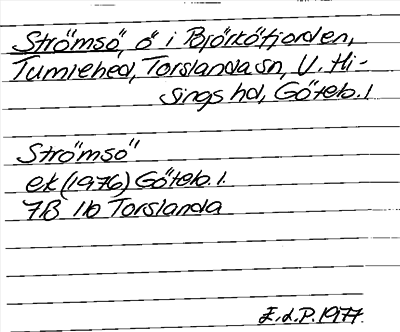 Strömsö, ö i Björköfjorden,
Tumlehed, Torslanda sn, V. Hi-
sings hd, Göteb. l
Strömsö
ek (1976) Göteb. l.
7B 1b Torslanda
E.d.P. 1977